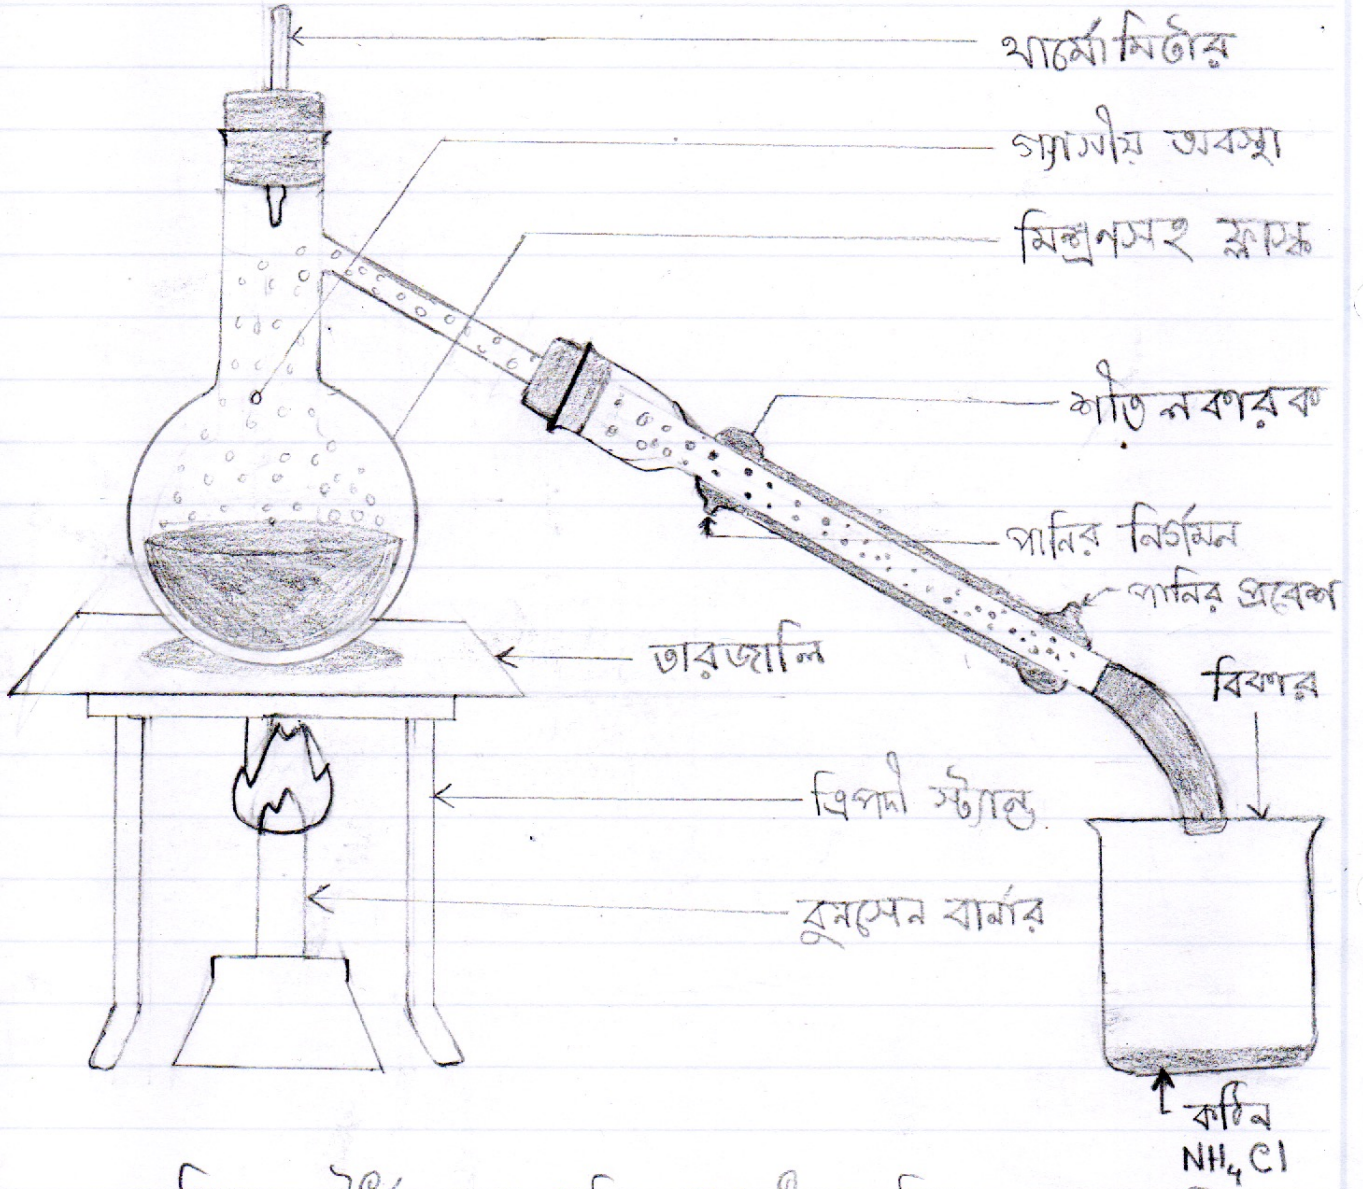 থার্মোমিটার
গ্যাসীয় অবস্থা
মিশ্রণসহ ফ্লাস্ক
শীতলকারক
পানির নির্গমন
পানির প্রবেশ
তারজালি
বিকার
ত্রিপদী স্ট্যান্ড
বুনসেন বার্নার
কঠিন
NH₄Cl